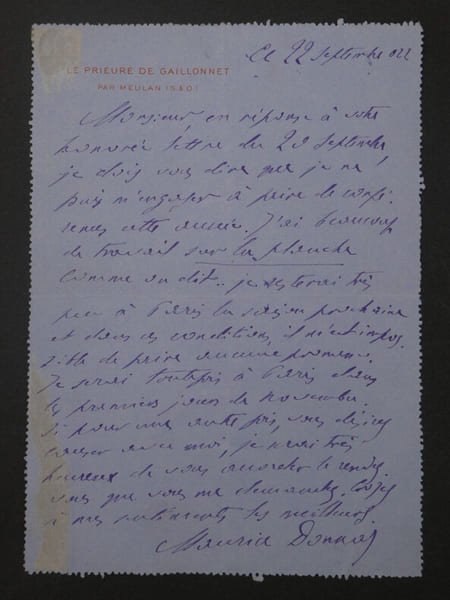 Ce 22 Septembre 022
LE PRIEURÉ DE GAILLONNET
PAR MEULAN (S & O)
Monsieur, en réponse à votre
honorée lettre du 20 Septembre,
je dois vous dire que je ne
puis m'engager à faire de confé-
rences cette année. J'ai beaucoup
de travail sur la planche
comme on dit.. je resterai très
peu à Paris la saison prochaine
et dans ces conditions, il m'est impos-
sible de faire aucune promesse.
Je serai toutefois à Paris dans
les premiers jours de novembre.
Si pour une autre fois, vous désirez
causer avec moi, je serai très
heureux de vous accorder le rendez-
vous que vous me demandez. Croyez
à mes sentiments les meilleurs.
Maurice Donnay